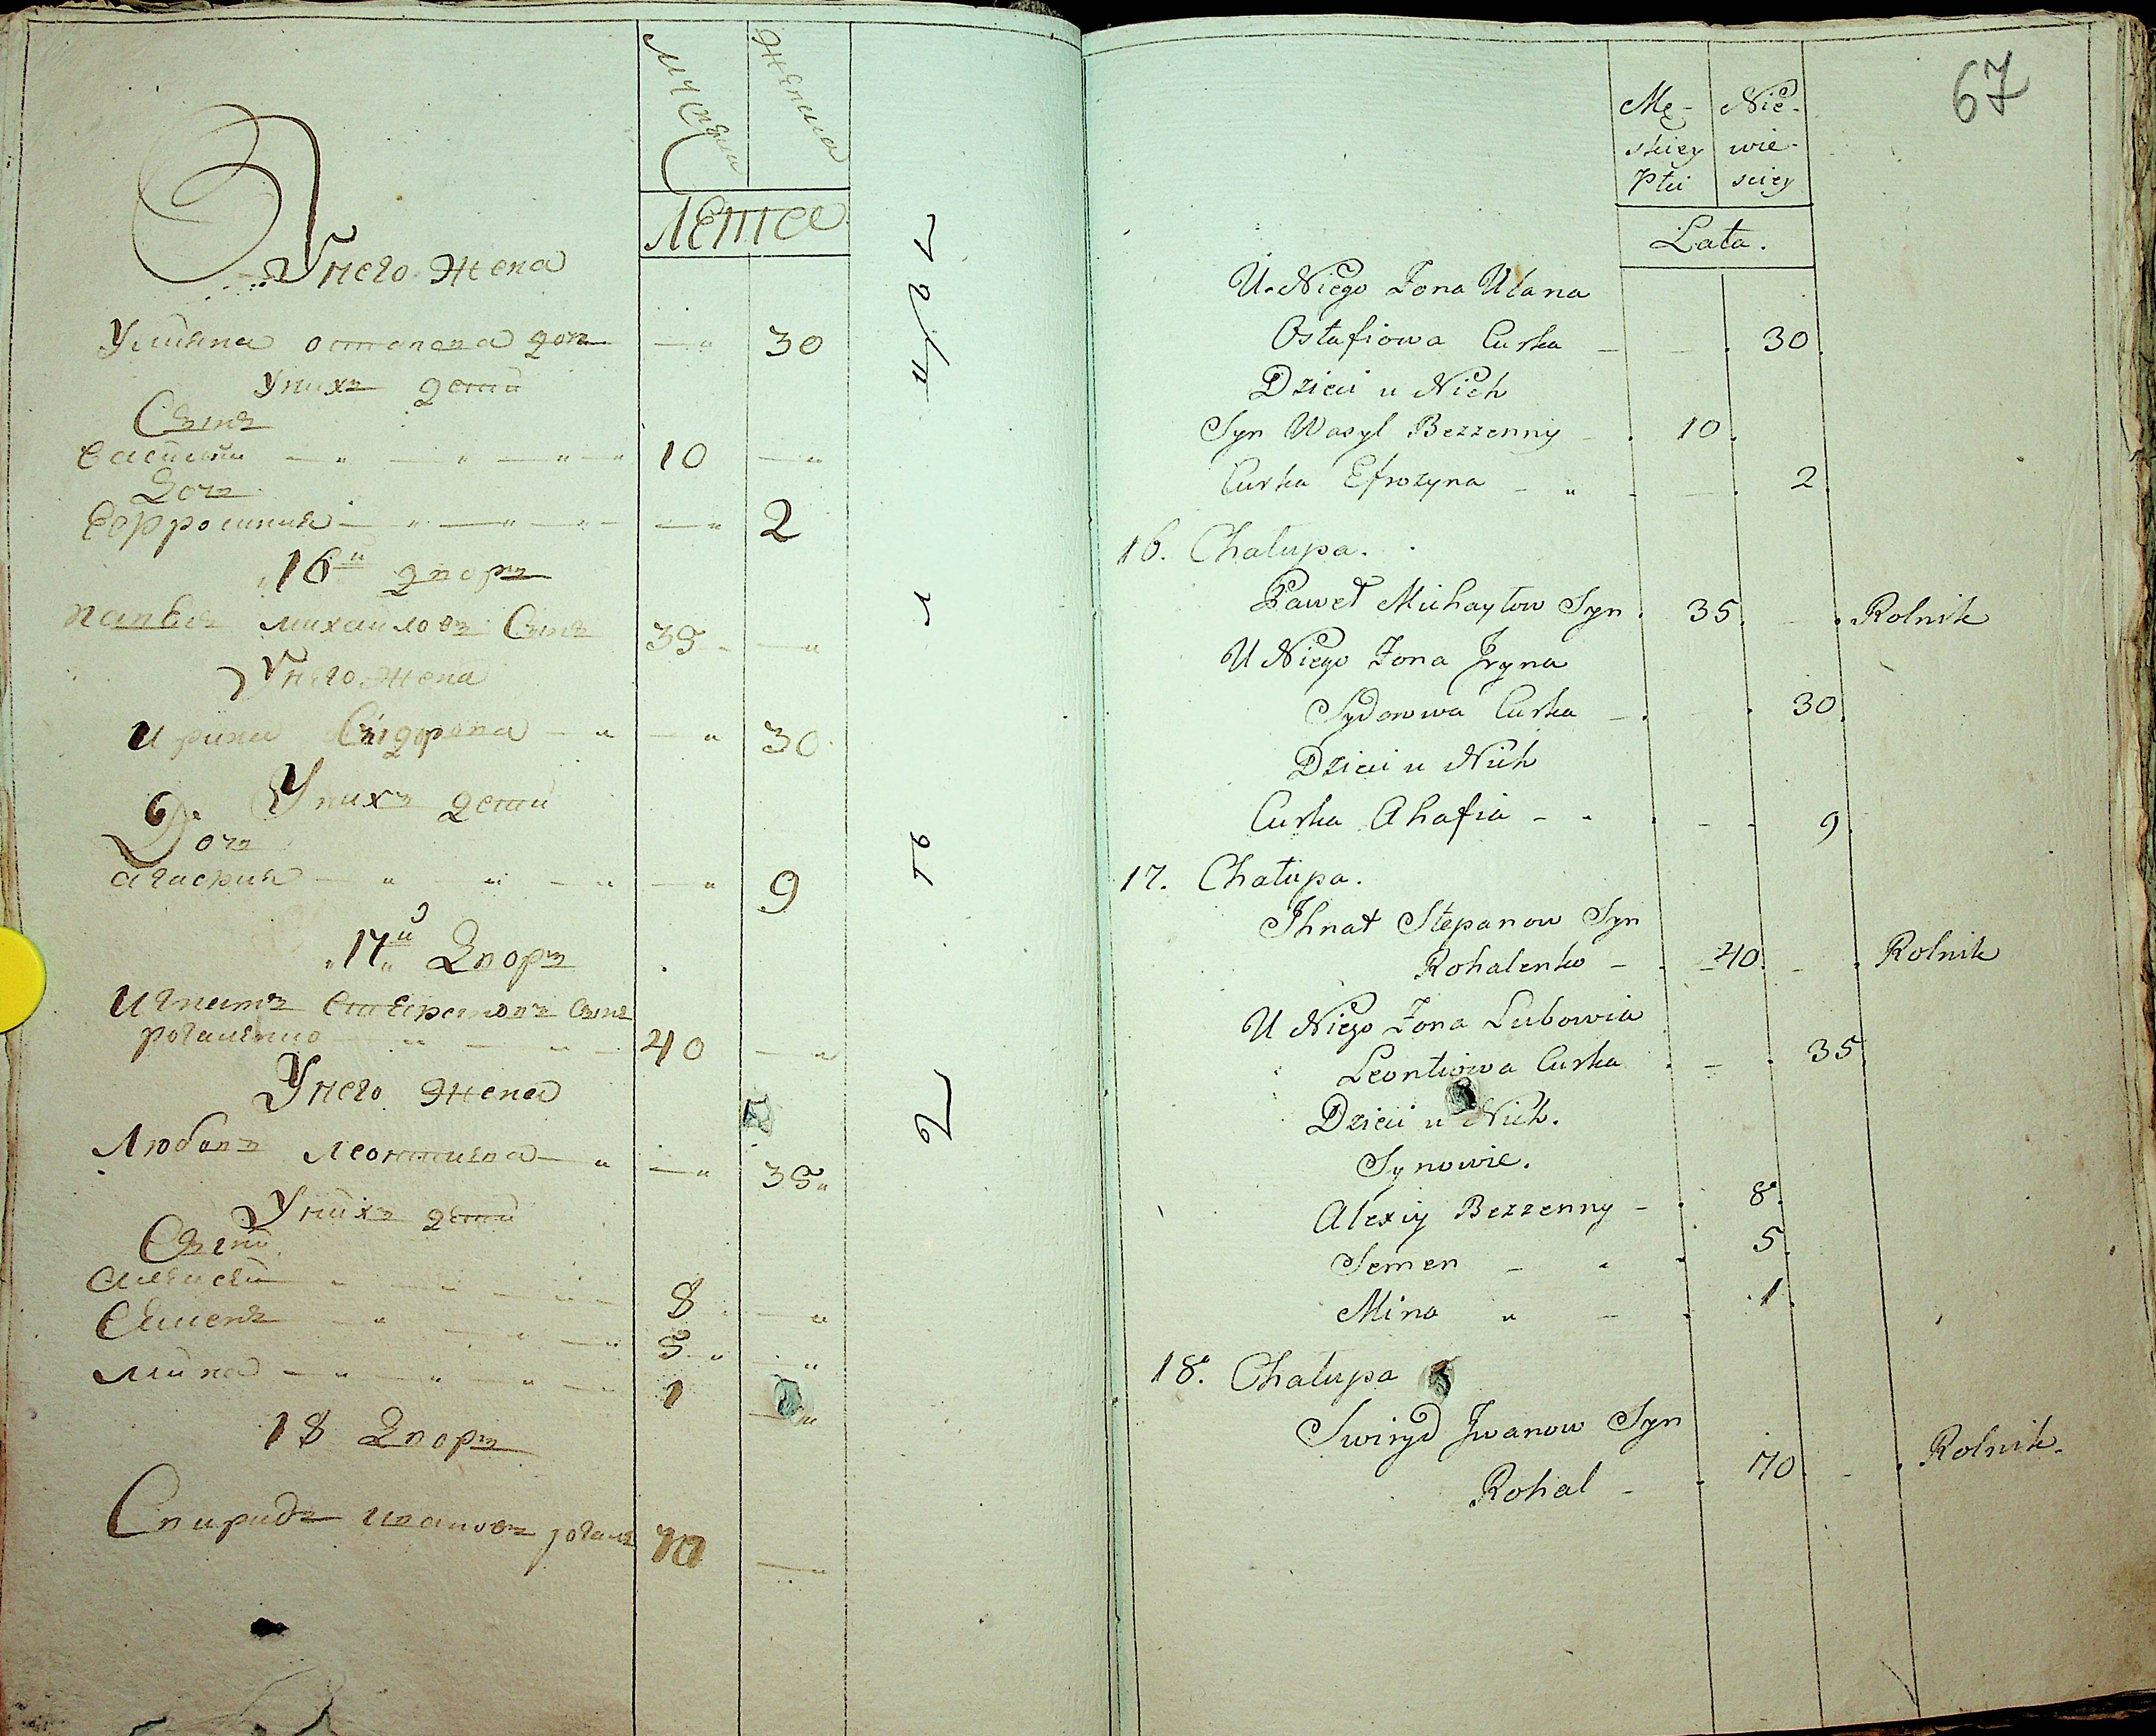 мужеска
женска
Лета
У него жена
Ульяна остапова доч — 30
У них дети
Сынъ
Василий — 10 —
Доч
Еофросиния — 2
16й дворъ
Павел михайловъ Сынъ 35 —
У него жена
Ирина Сидорова — 30
У них дети
Доч
Агафия — 9
17й Дворъ
Игнатъ Сынъ
рогаленко — 40 —
У него жена
Любовъ леонтиева — 35
У нихъ дети
Сыни
Алексей — 8 —
Семенъ — 5 —
Мина — 1 —
18 Дворъ
Свиридъ ивановъ рогаль 70 —
67
Mę- Nie-
skiey wie-
Płci sciey
Lata.
U Niego Zona Ulana
Ostafiowa Curka - - . 30.
Dzieci u Nich
Syn Wasyl Bezzenny - . 10.
Curka Efrozyna - „ - - . 2.
16. Chalupa.
Paweł Michayłow Syn . 35. - . Rolnik
U Niego Zona Jryna
Sydorowa Curka - . . 30.
Dzieci u Nich
Curka Ahafia - - . - - 9.
17. Chałupa.
Ihnat Stepanow Syn
Rohalenko - . 40. - . Rolnik
U Niego Zona Lubowia
Leontiowa Curka . - . 35.
Dzieci u Nich.
Synowie.
Alexiy Bezzenny - . 8.
Semen - „ . 5.
Mina „ - . 1.
18. Chalupa
Swiryd Jwanow Syn
Rohal - . 70. - . Rolnik.